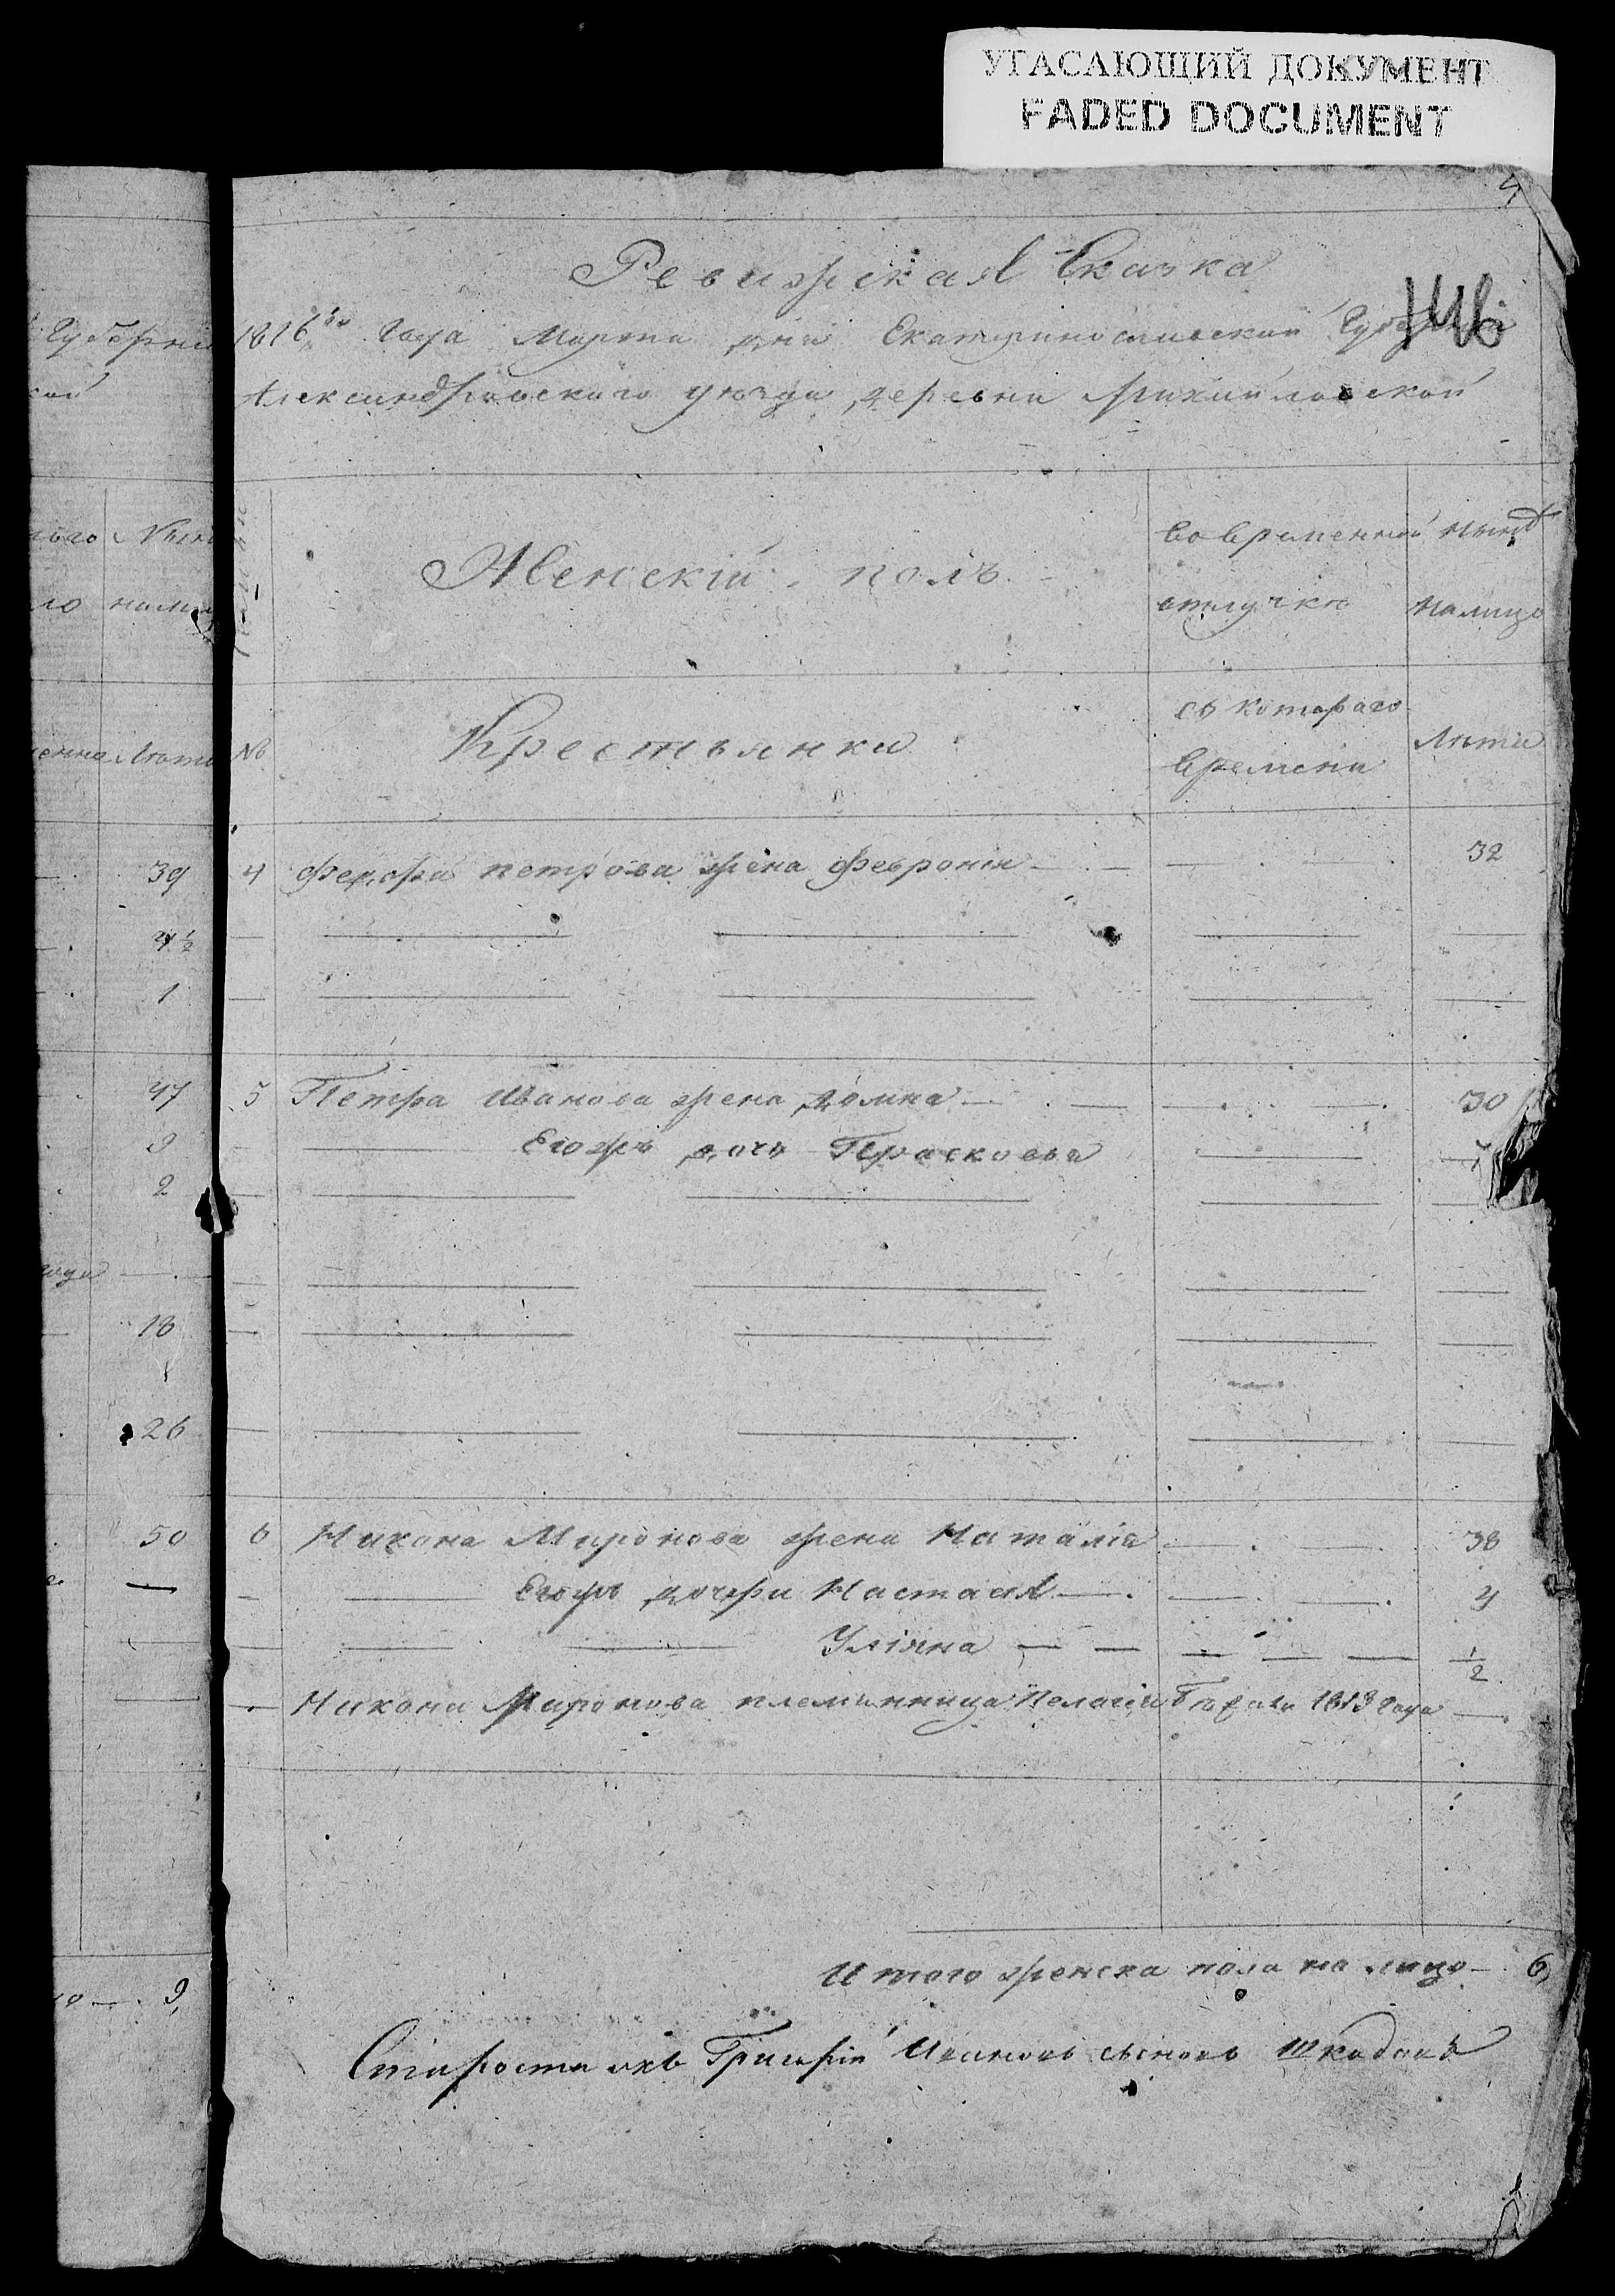 УГАСАЮЩИЙ ДОКУМЕНТ
FADED DOCUMENT
4
Ревижская Сказка
146
1816го Года Марта дня Екатеринославской Губернии
Александровского уезда деревни Михайловской
Губерніи
Женскій полъ
во временной отлучкѣ
Нынѣ налицо
№
Крестьянки
съ котораго времени
Лѣта
39
4 Федора петрова жена Феврониа — — 32
4½
1
47
5 Петра Иванова жена Домна — — 30
9
Егожъ дочь Прасковья — 7
2
18
26
50
6 Никона Миронова жена Наталія — — 38
Егожъ дочери Настася — — 4
Уліяна — — ½
Никона Миронова племянница Пелагія Бѣжала 1813 года —
Итого женска пола на лицо — 6
9
Староста Григорій Ивановъ сынъ